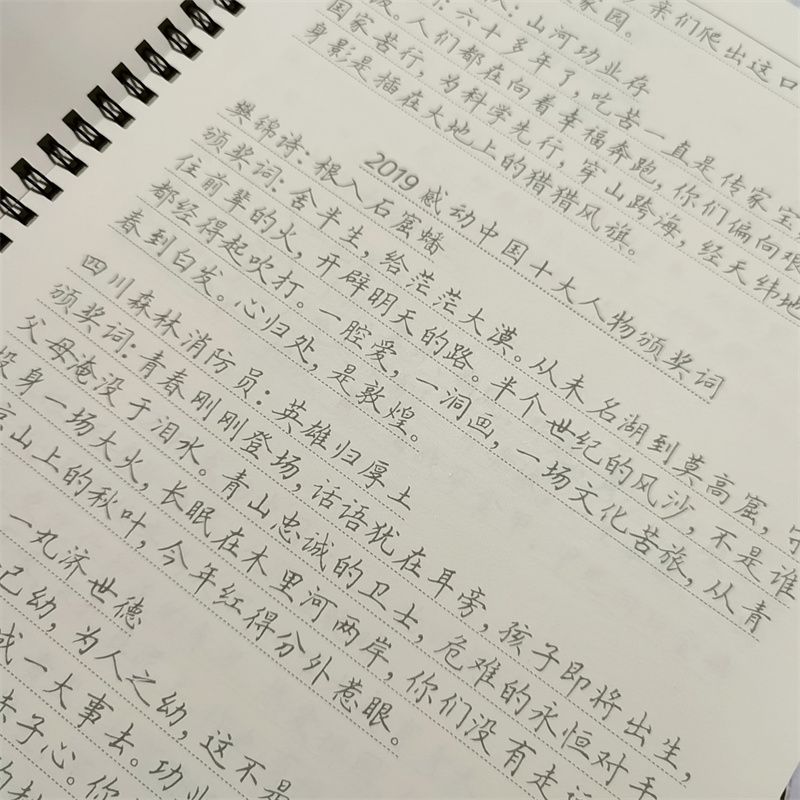 亲们爬出这口
家园。
山河功业存
六十多年了，吃苦一直是传家宝
国家苦行，为科学先行，穿山跨海，经天纬地
人们都在向着幸福奔跑，你们偏向艰
身影是插在大地上的猎猎风旗。
2019感动中国十大人物颁奖词
樊锦诗：根入石窟蟠
颁奖词：舍半生，给茫茫大漠。从未名湖到莫高窟，守
住前辈的火，开辟明天的路。半个世纪的风沙，不是谁
都经得起吹打。一腔爱，一洞画，一场文化苦旅，从青
春到白发。心归处，是敦煌。
四川森林消防员：英雄归厚土
颁奖词：青春刚刚登场，话语犹在耳旁，孩子即将出生，
父母淹没于泪水。青山忠诚的卫士，危难的永恒对手
投身一场大火，长眠在木里河两岸，你们没有走远
山上的秋叶，今年红得分外惹眼。
一丸济世德
己幼，为人之幼，这不是
成一大事去。功业
子心。你